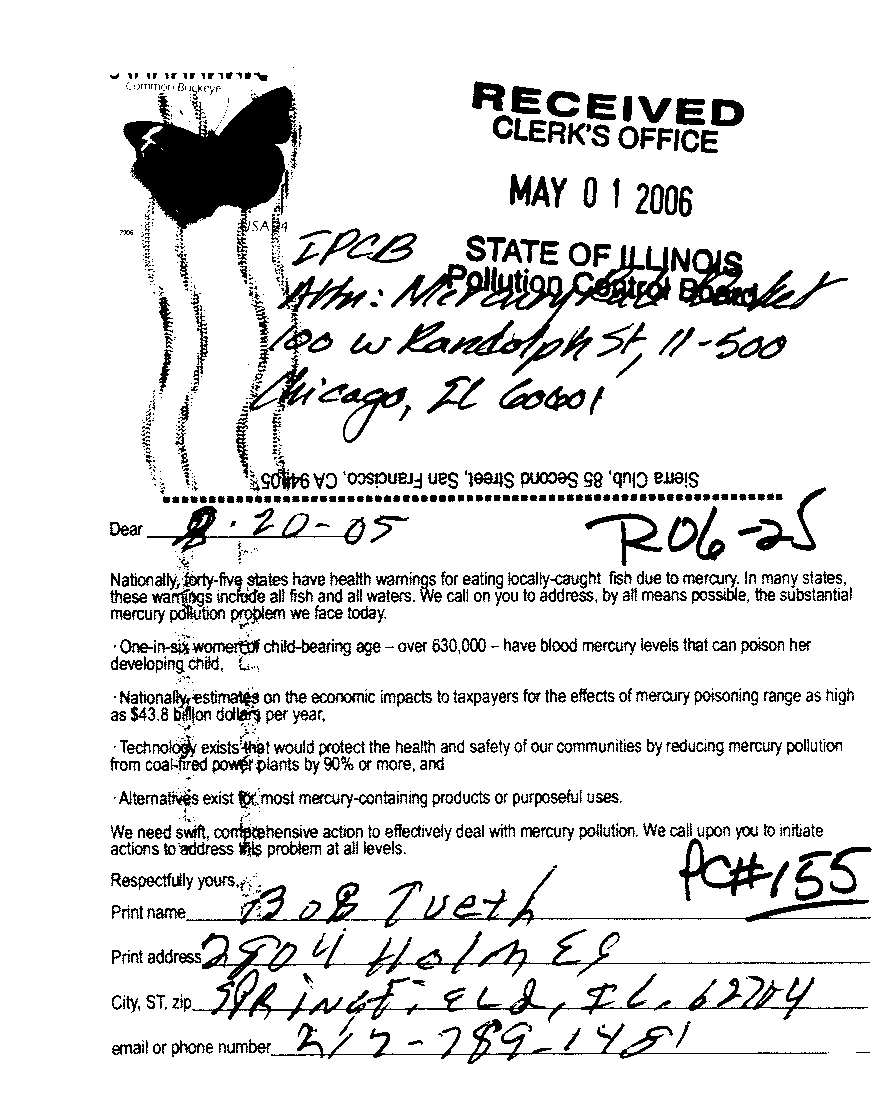 Common Buckeye
RECEIVED
CLERK'S OFFICE
MAY 0 1 2006
STATE OF ILLINOIS
Pollution Control Board
2006
USA 24
IPCB
Attn: Mercury Rule Docket
100 W Randolph St, 11-500
Chicago, IL 60601
Sierra Club, 85 Second Street, San Francisco, CA 94105
Dear 8-20-05
R06-25
Nationally, forty-five states have health warnings for eating locally-caught fish due to mercury. In many states,
these warnings include all fish and all waters. We call on you to address, by all means possible, the substantial
mercury pollution problem we face today.
· One-in-six women of child-bearing age – over 630,000 – have blood mercury levels that can poison her
developing child,
· Nationally, estimates on the economic impacts to taxpayers for the effects of mercury poisoning range as high
as $43.8 billion dollars per year,
· Technology exists that would protect the health and safety of our communities by reducing mercury pollution
from coal-fired power plants by 90% or more, and
· Alternatives exist for most mercury-containing products or purposeful uses.
We need swift, comprehensive action to effectively deal with mercury pollution. We call upon you to initiate
actions to address this problem at all levels.
PC#155
Respectfully yours,
Print name BOB Tueth
Print address 2904 HOLMES
City, ST, zip SPRINGFIELD, IL. 62704
email or phone number 217-789-1481